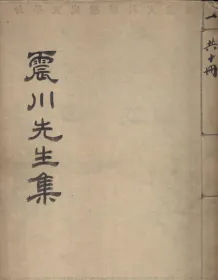 震川先生集
一
共十冊